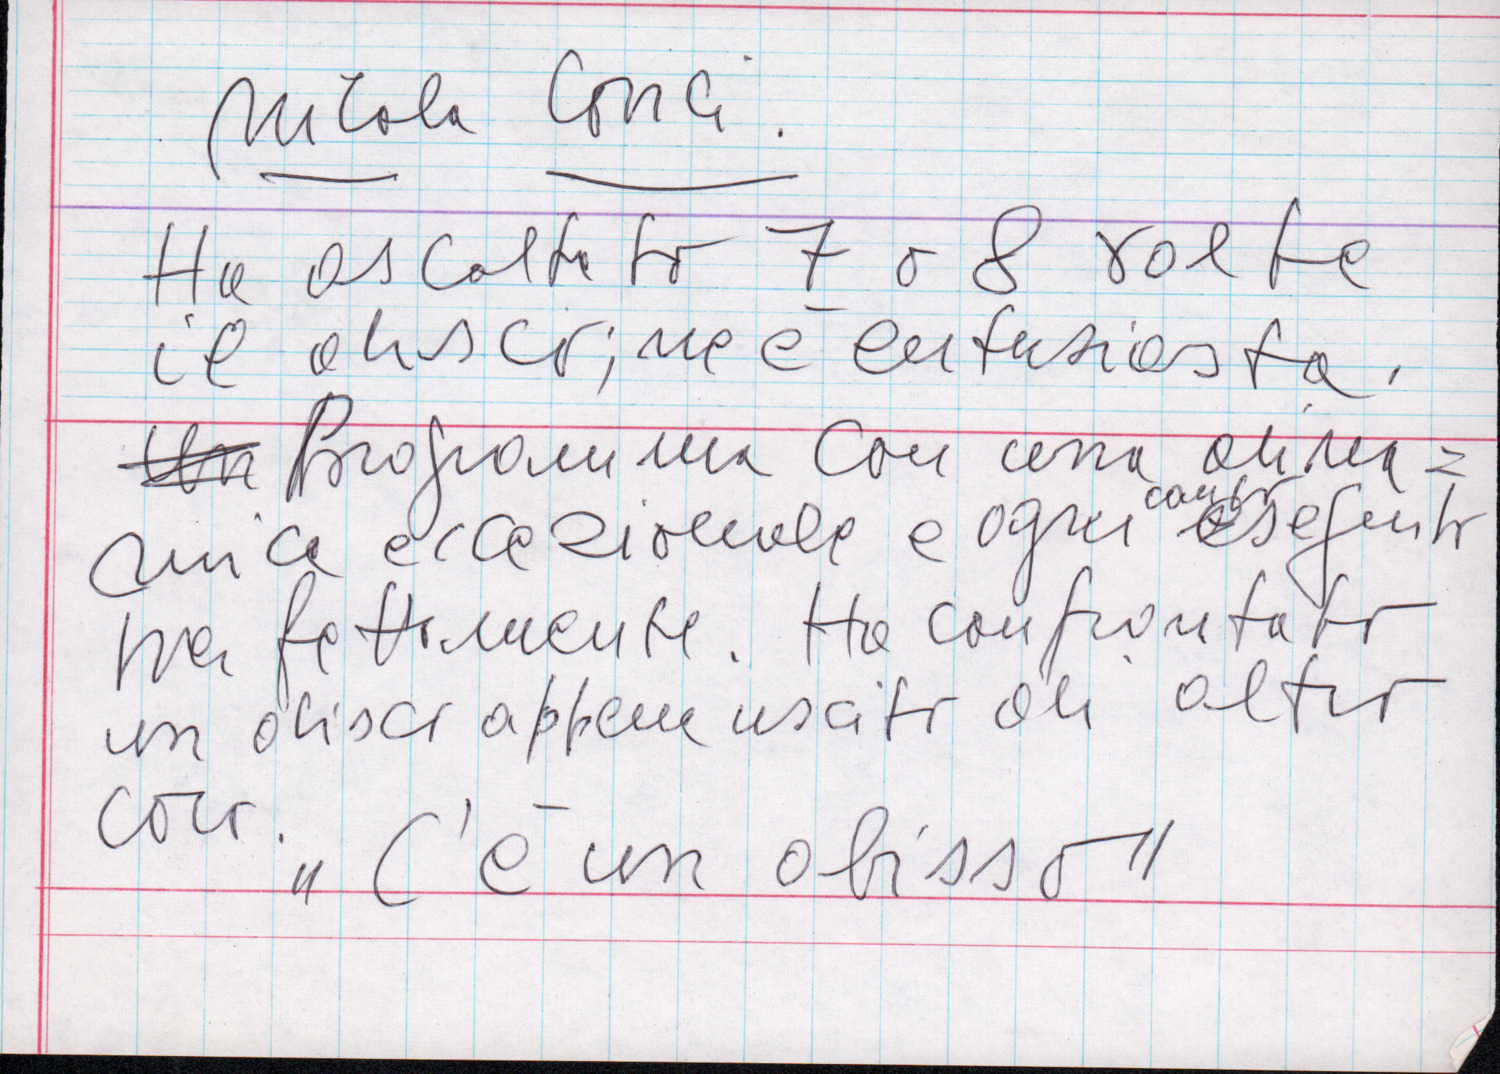 Nicola Conci.
Ha ascoltato 7 o 8 volte
il disco; ne è entusiasta.
Programma con una dina=
mica eccezionale e ogni canto eseguito
perfettamente. Ha confrontato
un disco appena uscito di altro
coro.
"C'è un abisso"